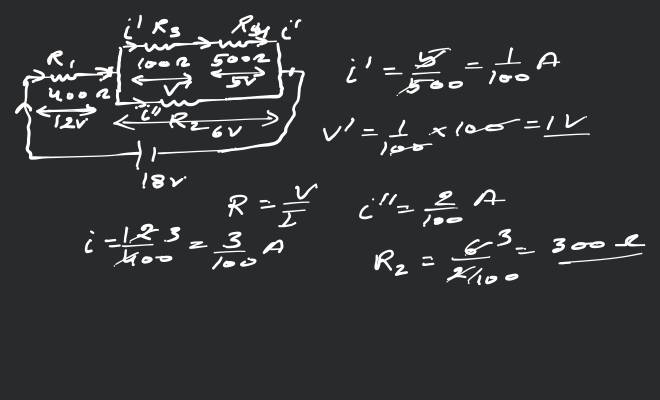 i' R₃ R₄ i''
R₁ 100Ω 500Ω
400Ω V' 5V
12V i'' R₂ 6V
18V
i' = 5/500 = 1/100 A
V' = 1/100 × 100 = 1V
R = V/I
i'' = 2/100 A
i = 12 3/400 = 3/100 A
R₂ = 6 3/2/100 = 300Ω